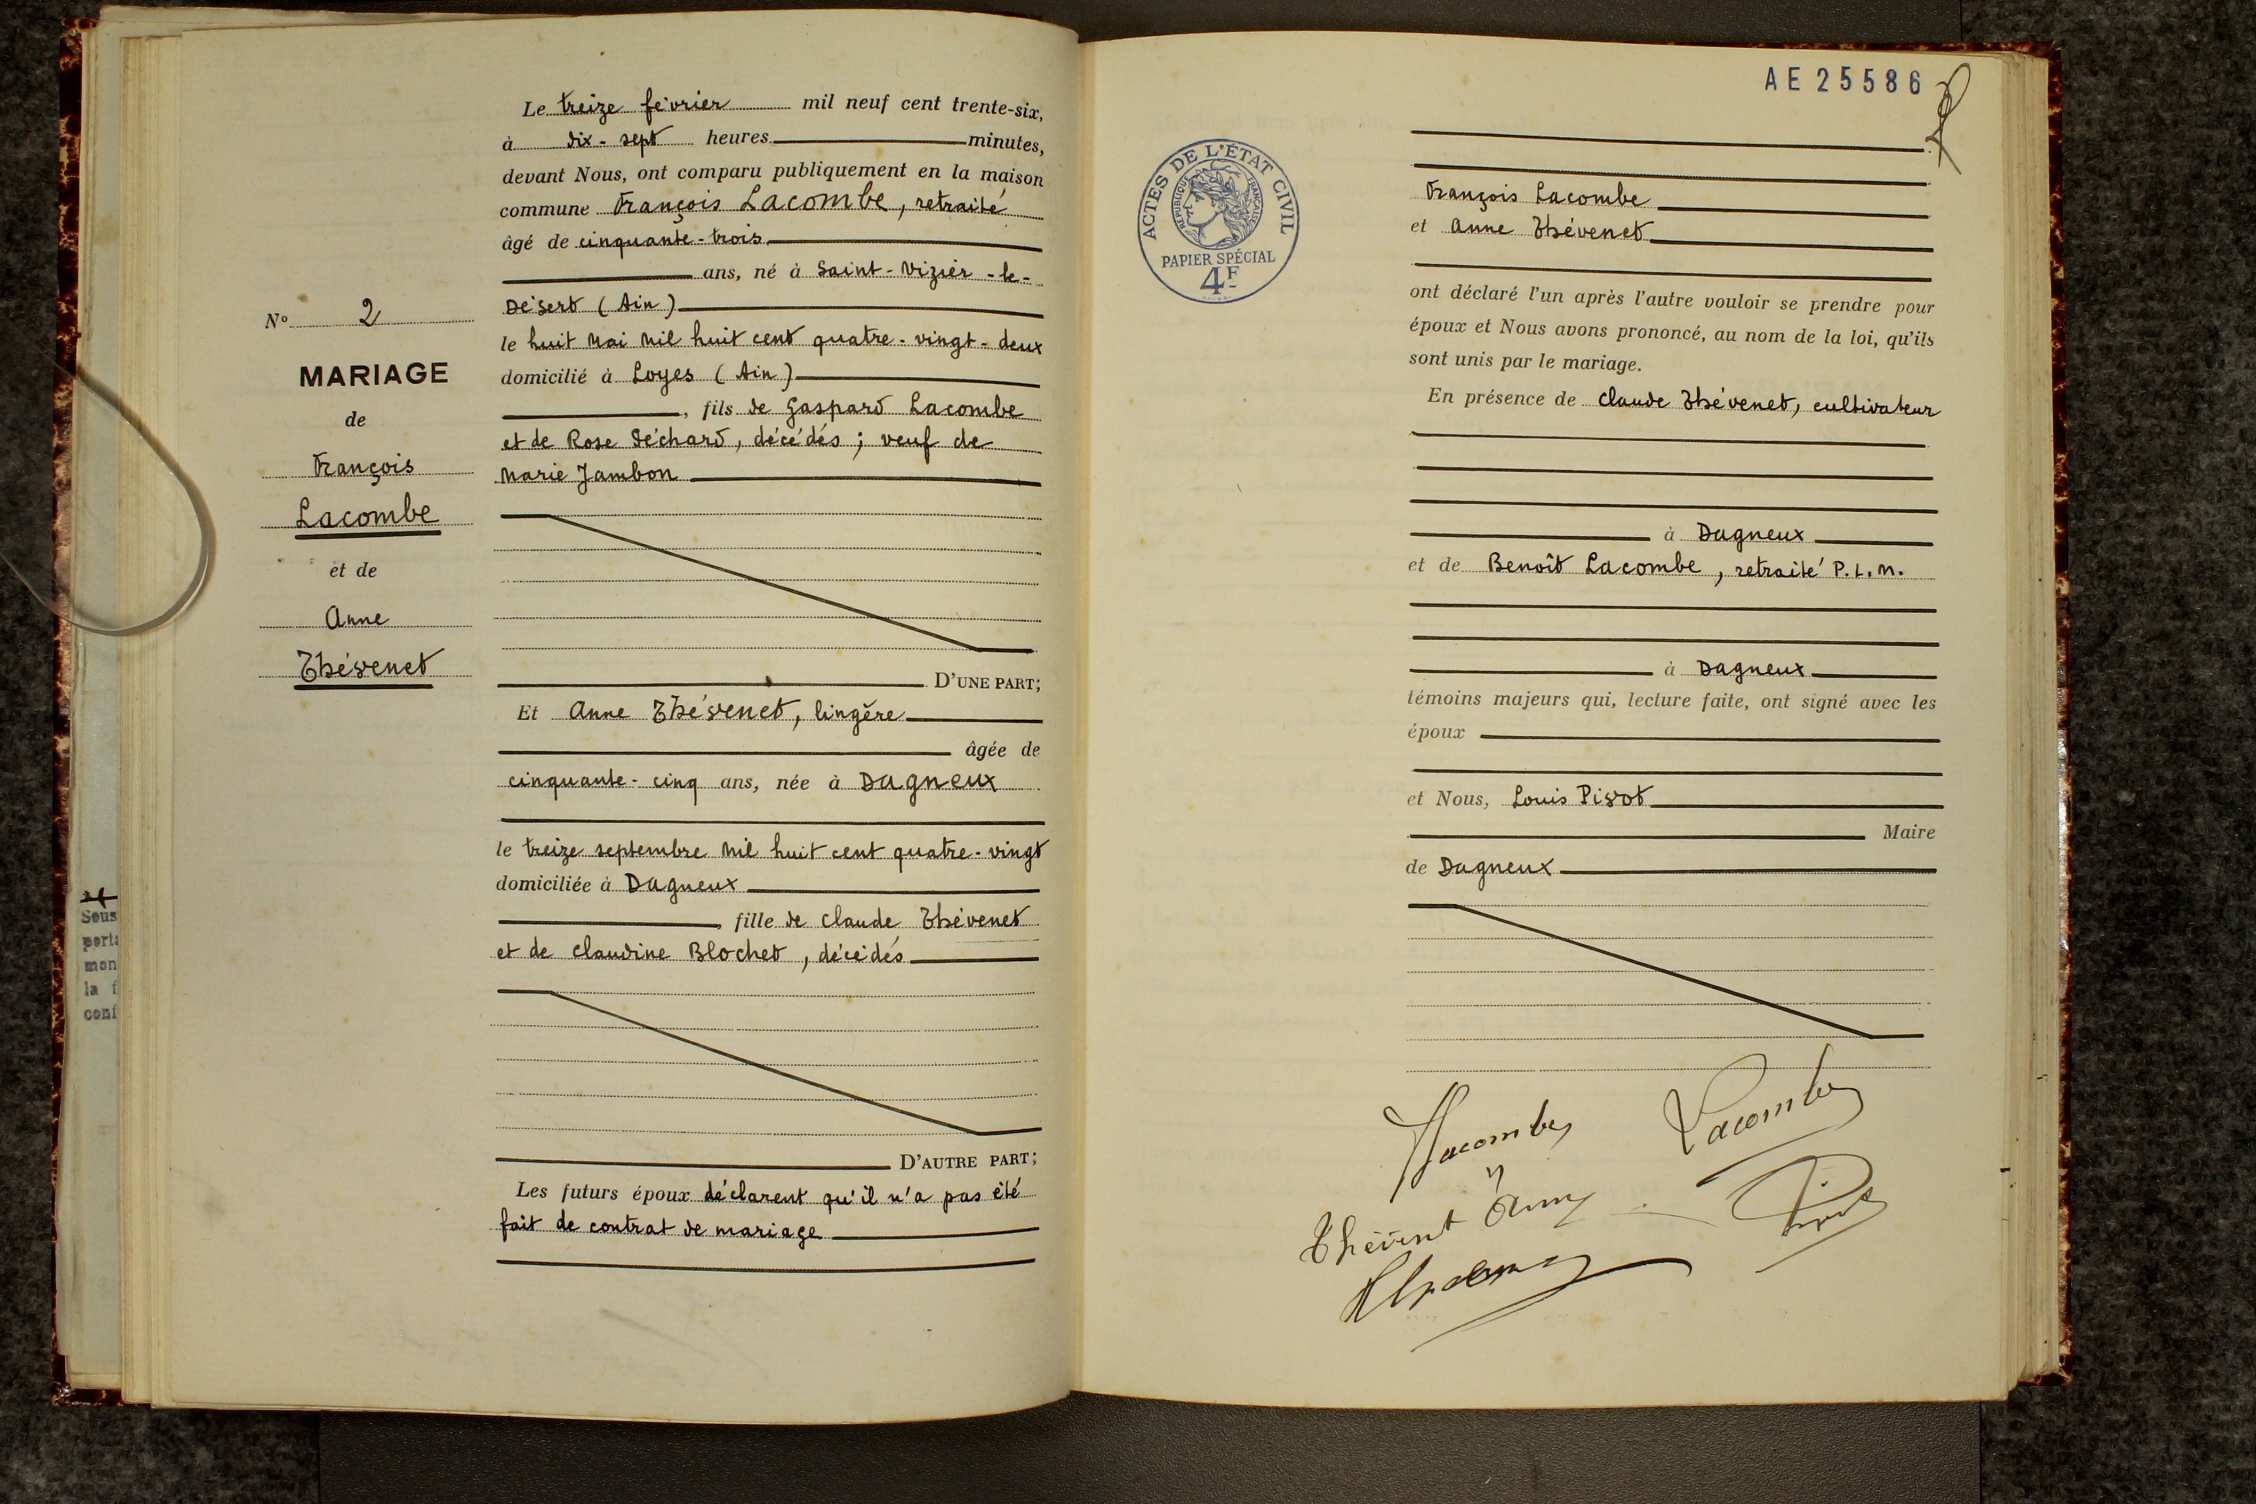 Le treize février mil neuf cent trente-six,
à dix-sept heures minutes,
devant Nous, ont comparu publiquement en la maison
commune François Lacombe, retraité
âgé de cinquante-trois
ans, né à Saint-Vizier-le-
Désert (Ain)
le huit Mai Mil huit cent quatre-vingt-deux
domicilié à Loyes (Ain)
, fils de Gaspard Lacombe
et de Rose Déchard, décédés ; veuf de
Marie Jambon
D'UNE PART;
Et Anne Thévenet, lingère
âgée de
cinquante-cinq ans, née à Dagneux
le treize septembre Mil huit cent quatre-vingt
domiciliée à Dagneux
, fille de Claude Thévenet
et de Claudine Blochet, décédés
D'AUTRE PART;
Les futurs époux déclarent qu'il n'a pas été
fait de contrat de mariage
N° 2
MARIAGE
de
François
Lacombe
et de
Anne
Thévenet
Sous
la
AE25586
ACTES DE L'ÉTAT CIVIL
RÉPUBLIQUE FRANÇAISE
PAPIER SPÉCIAL
4F
François Lacombe
et Anne Thévenet
ont déclaré l'un après l'autre vouloir se prendre pour
époux et Nous avons prononcé, au nom de la loi, qu'ils
sont unis par le mariage.
En présence de Claude Thévenet, cultivateur
à Dagneux
et de Benoît Lacombe, retraité P.L.M.
à Dagneux
témoins majeurs qui, lecture faite, ont signé avec les
époux
et Nous, Louis Pivot
Maire
de Dagneux
Lacombe Lacombe